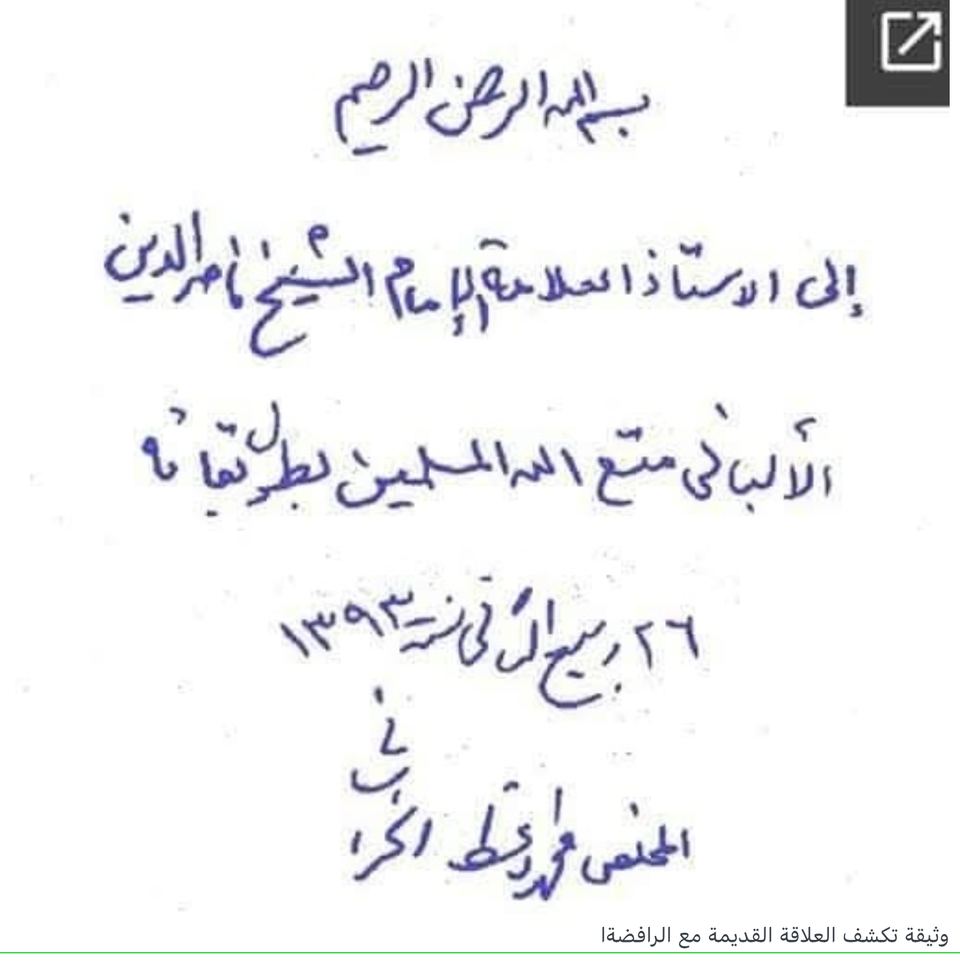 بسم الله الرحمن الرحيم
إلى الاستاذ العلامة الإمام الشيخ ناصر الدين
الألباني متع الله المسلمين بطول بقائه
٢٦ ربيع الثاني سنة ١٣٩٣
المخلص محمد واعظ
الخراساني
وثيقة تكشف العلاقة القديمة مع الرافضة!